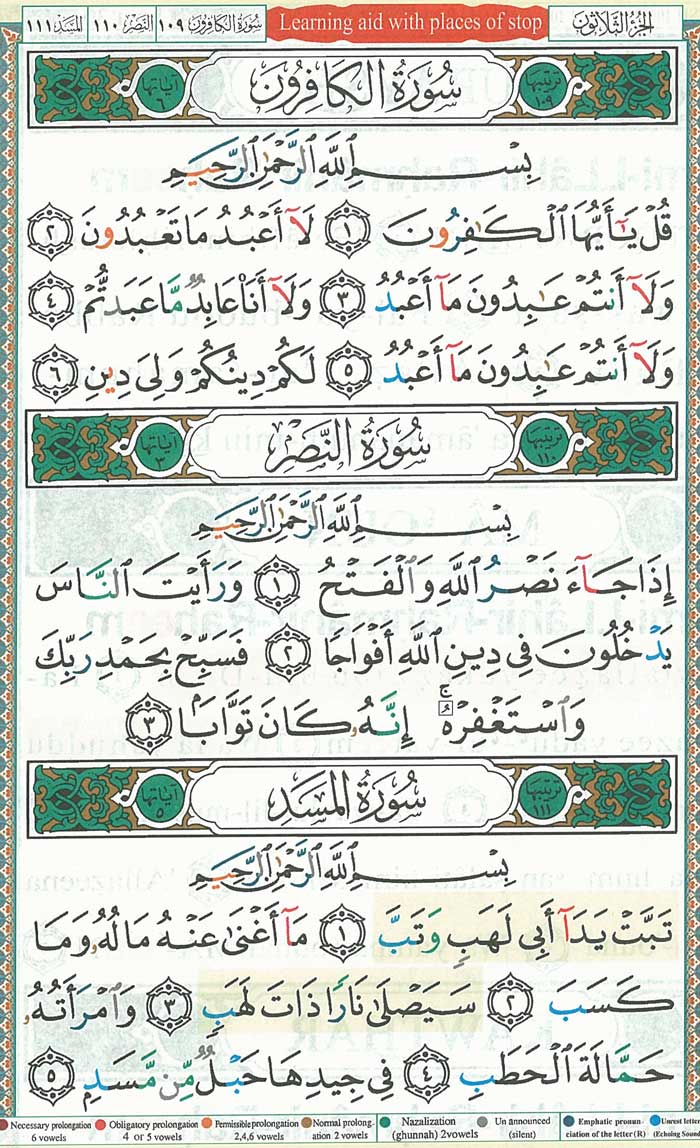 الجزء الثلاثون Learning aid with places of stop سورة الكافرون ١٠٩ النصر ١١٠ المسد ١١١
ترتيبها ١٠٩ سُورَةُ الكَافِرُون آياتها ٦
بِسْمِ ٱللَّهِ ٱلرَّحْمَٰنِ ٱلرَّحِيمِ
قُلْ يَٰٓأَيُّهَا ٱلْكَٰفِرُونَ ١ لَآ أَعْبُدُ مَا تَعْبُدُونَ ٢
وَلَآ أَنتُمْ عَٰبِدُونَ مَآ أَعْبُدُ ٣ وَلَآ أَنَا۠ عَابِدٌ مَّا عَبَدتُّمْ ٤
وَلَآ أَنتُمْ عَٰبِدُونَ مَآ أَعْبُدُ ٥ لَكُمْ دِينُكُمْ وَلِىَ دِينِ ٦
ترتيبها ١١٠ سُورَةُ النَّصْر آياتها ٣
بِسْمِ ٱللَّهِ ٱلرَّحْمَٰنِ ٱلرَّحِيمِ
إِذَا جَآءَ نَصْرُ ٱللَّهِ وَٱلْفَتْحُ ١ وَرَأَيْتَ ٱلنَّاسَ
يَدْخُلُونَ فِى دِينِ ٱللَّهِ أَفْوَاجًا ٢ فَسَبِّحْ بِحَمْدِ رَبِّكَ
وَٱسْتَغْفِرْهُ ۚ إِنَّهُۥ كَانَ تَوَّابًۢا ٣
ترتيبها ١١١ سُورَةُ المَسَد آياتها ٥
بِسْمِ ٱللَّهِ ٱلرَّحْمَٰنِ ٱلرَّحِيمِ
تَبَّتْ يَدَآ أَبِى لَهَبٍ وَتَبَّ ١ مَآ أَغْنَىٰ عَنْهُ مَالُهُۥ وَمَا
كَسَبَ ٢ سَيَصْلَىٰ نَارًا ذَاتَ لَهَبٍ ٣ وَٱمْرَأَتُهُۥ
حَمَّالَةَ ٱلْحَطَبِ ٤ فِى جِيدِهَا حَبْلٌ مِّن مَّسَدٍۭ ٥
Necessary prolongation Obligatory prolongation Permissible prolongation Normal prolong- Nazalization Un announced Emphatic pronun- Unrest letters
6 vowels 4 or 5 vowels 2,4,6 vowels ation 2 vowels (ghunnah) 2vowels (silent) ciation of the letter (R) (Echoing Sound)